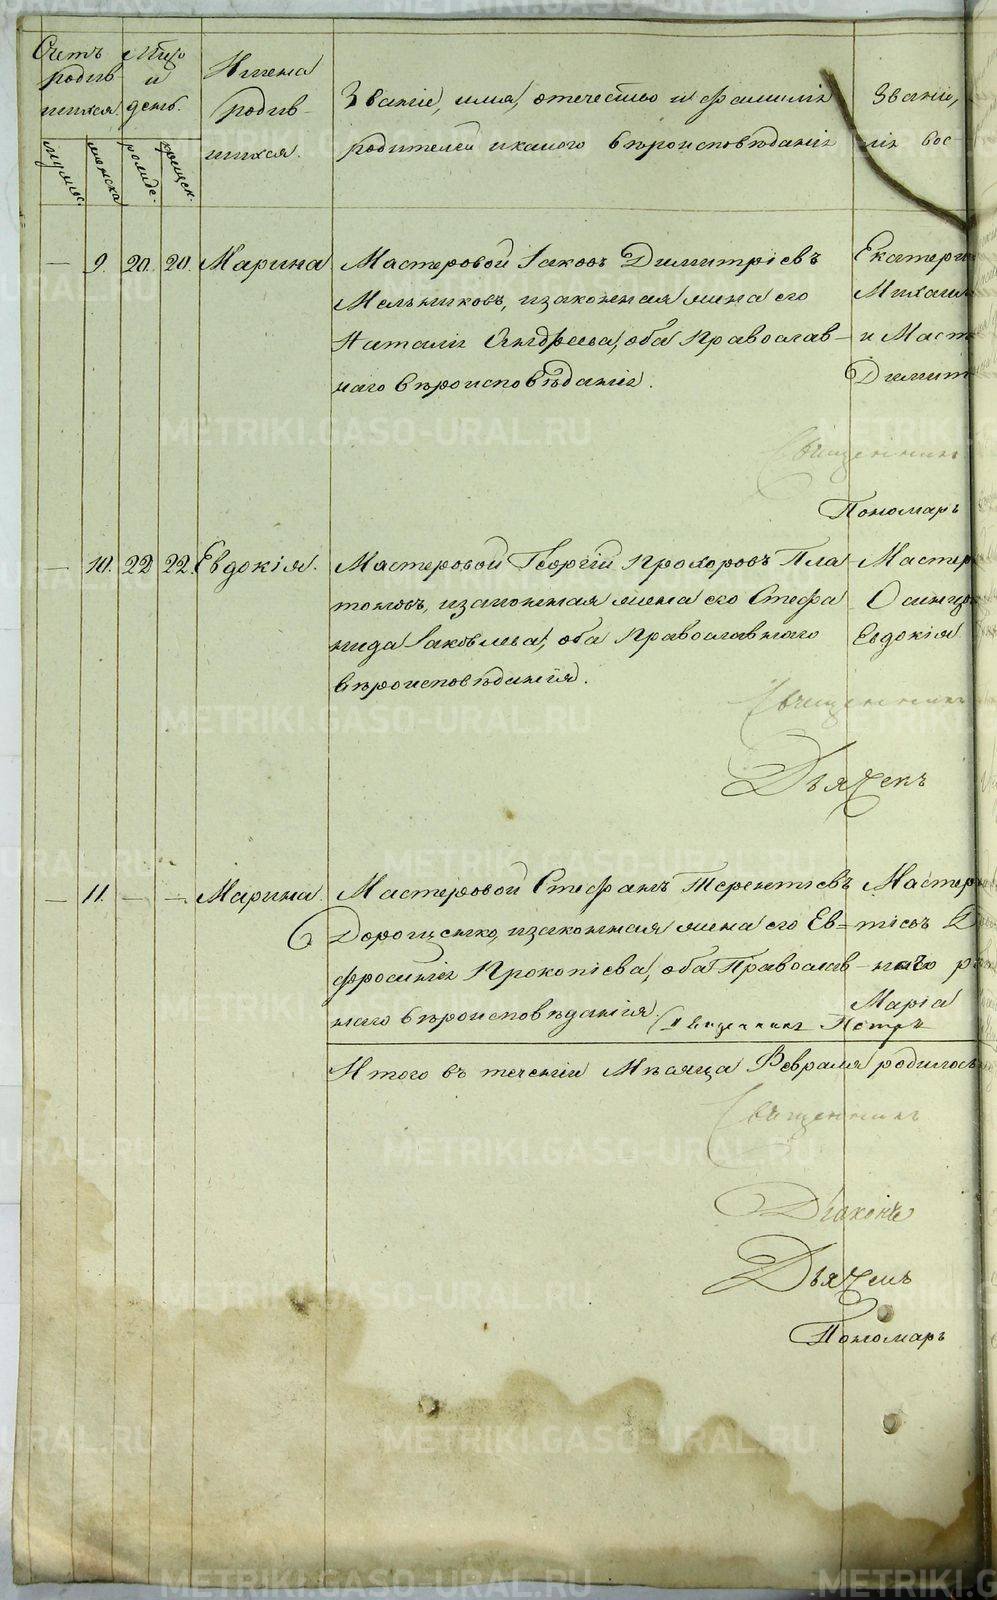 Счетъ родив шихся.
Мцъ и день.
Имена родив- шихся.
Званіе, имя, отечество и фамилія
родителей и какого вѣроисповѣданія
Званіе,
лія вос-
мужес.
женска
рожде.
крещен.
— 9. 20. 20. Марина
Мастеровой Іаковъ Димитріевъ
Мельниковъ, и законная жена его
Наталія Андреева, оба Православ-
наго вѣроисповѣданія.
Екатерин
Михаил
и Маст
Димит
Священникъ
Пономарь
— 10. 22 22. Евдокія.
Мастеровой Георгій Прохоровъ Пла
тоновъ, и законная жена его Стефа
нида Іаковлева, оба Православнаго
вѣроисповѣданія.
Мастер
Евдокія
Священникъ
Дьячекъ
— 11. — — Марина.
Мастеровой Стефанъ Терентіевъ
Дорощенко, и законная жена его Ев=
фросинія Прокопіева, оба Православ-
наго вѣроисповѣданія.
Мастер
тіевъ Д
наго р
Марія
Священникъ Петръ
Итого въ теченіи Мѣсяца Февраля родилось
Священникъ
Діаконъ
Дьячекъ
Пономарь
METRIKI.GASO-URAL.RU